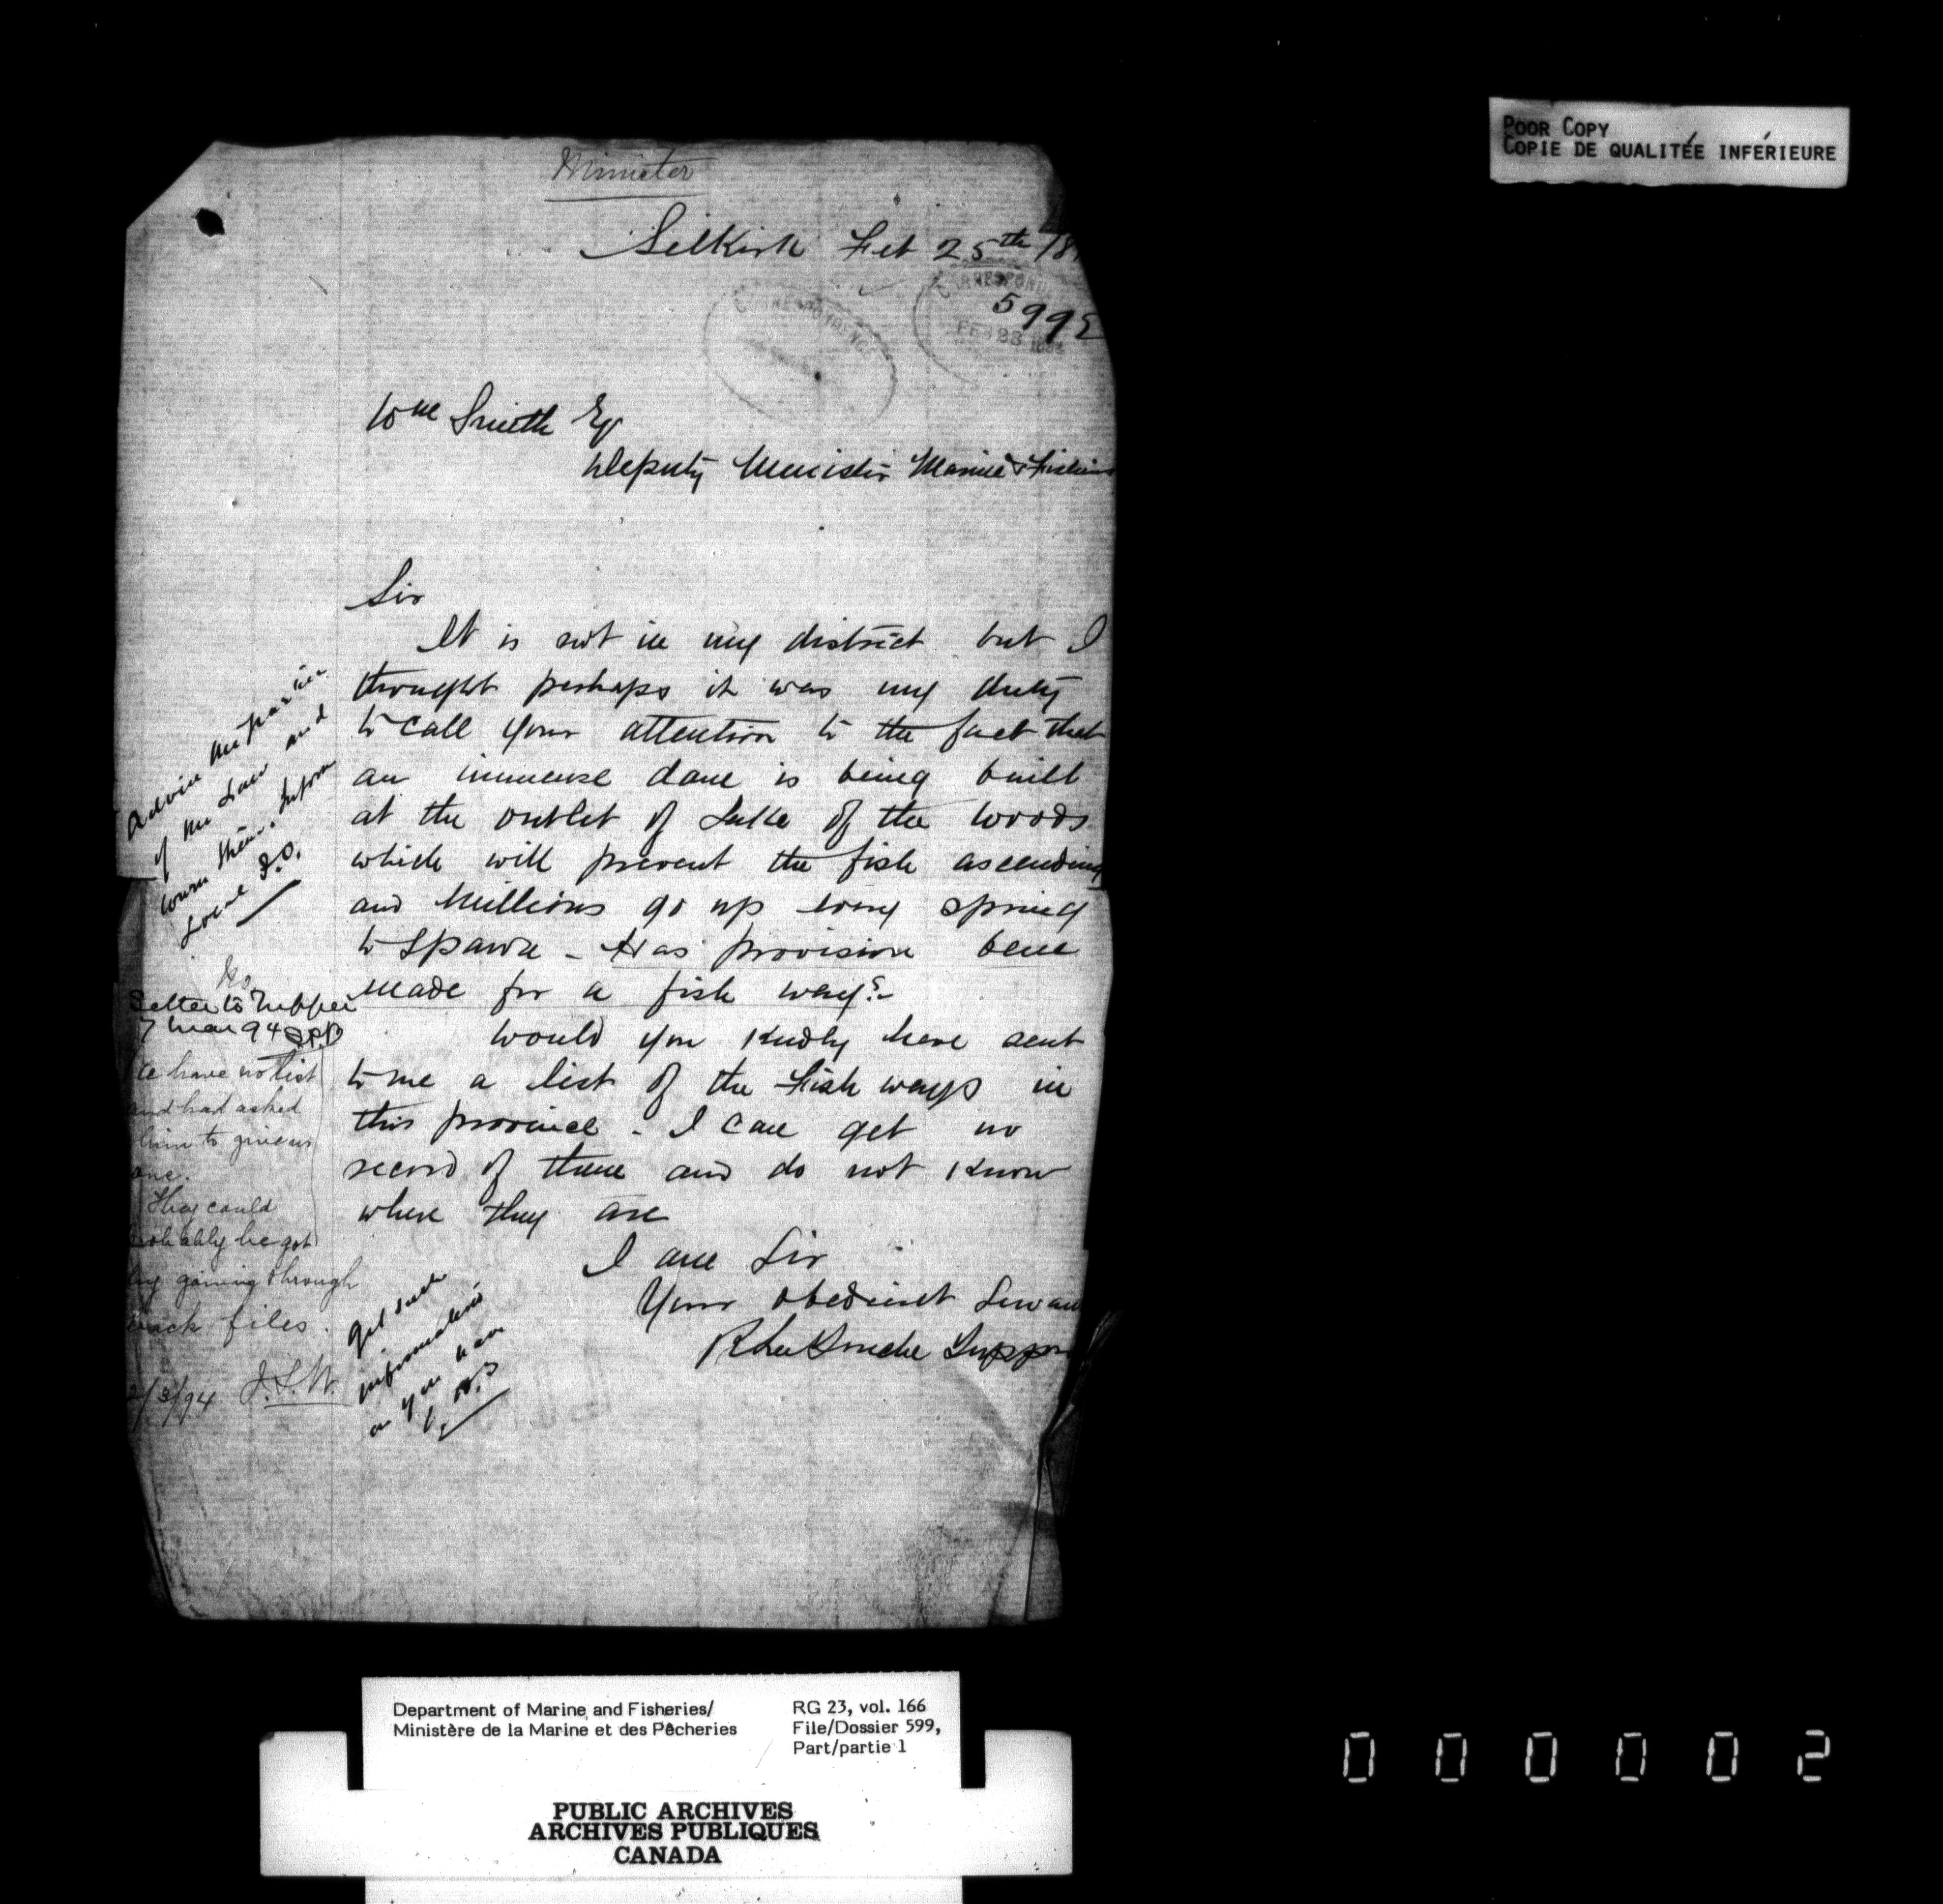 POOR COPY
COPIE DE QUALITÉE INFÉRIEURE
Minister
Selkirk Feb 25th 18
CORRESPONDENCE
5992
FEB 28 189
CORRESPONDENCE
Wm Smith Esq
Deputy Minister Marine & Fisheries
Sir
It is not in my district but I
thought perhaps it was my duty
to call your attention to the fact that
an immense dam is being built
at the outlet of Lake of the Woods
which will prevent the fish ascending
and Millions go up every spring
to spawn - Has provision been
made for a fish way?
Would you kindly have sent
to me a list of the Fish ways in
this province - I can get no
record of them and do not know
where they are
I am Sir
Your obedient Servan
R LaTouche Tupper
Advise the parties
of the Law and
warn them. Inform
Local F.O.
No
Letter to Tupper
7 Mar 94
We have no list
and had asked
him to give us
one.
They could
probably be got
by going through
back files.
2/3/94
get such
information
as you can
Department of Marine and Fisheries/
Ministère de la Marine et des Pêcheries
RG 23, vol. 166
File/Dossier 599,
Part/partie 1
PUBLIC ARCHIVES
ARCHIVES PUBLIQUES
CANADA
000002